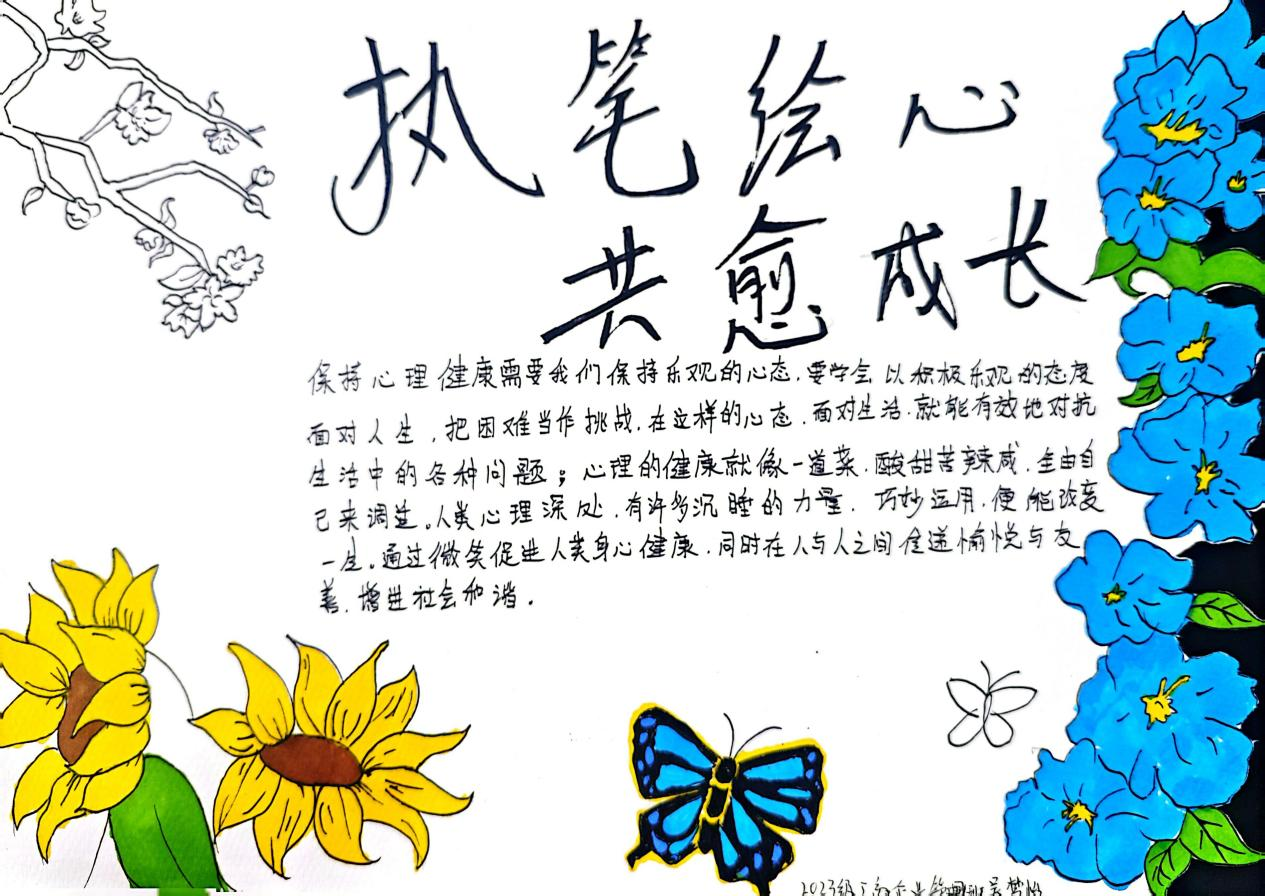 执笔绘心
共愈成长
保持心理健康需要我们保持乐观的心态.要学会以积极乐观的态度
面对人生,把困难当作挑战.在这样的心态.面对生活.就能有效地对抗
生活中的各种问题;心理的健康就像一道菜.酸甜苦辣咸.全由自
己来调注。人类心理深处,有许多沉睡的力量.巧妙运用.便能改变
一生。通过微笑促进人类身心健康.同时在人与人之间传递愉悦与友
善.增进社会和谐.
2023级